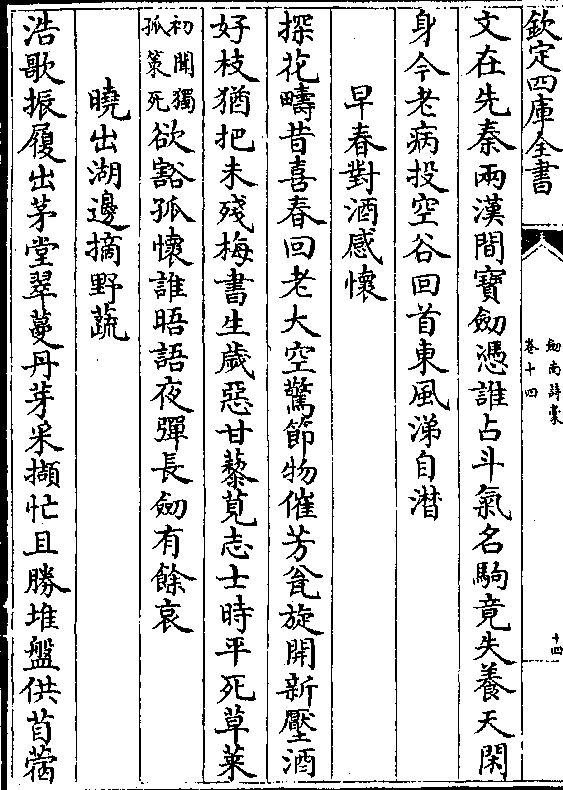 欽定四庫全書
劔南詩稾
卷十四
十四
文在先秦兩漢間寶劔憑誰占斗氣名駒竟失養天閑
身今老病投空谷回首東風涕自潸
早春對酒感懷
探花疇昔喜春回老大空驚節物催芳瓮旋開新壓酒
好枝猶把未殘梅書生歳惡甘藜莧志士時平死草萊
初聞獨
孤策死
欲豁孤懷誰晤語夜彈長劔有餘哀
曉出湖邊摘野蔬
浩歌振履出茅堂翠蔓丹芽采擷忙且勝堆盤供苜蓿